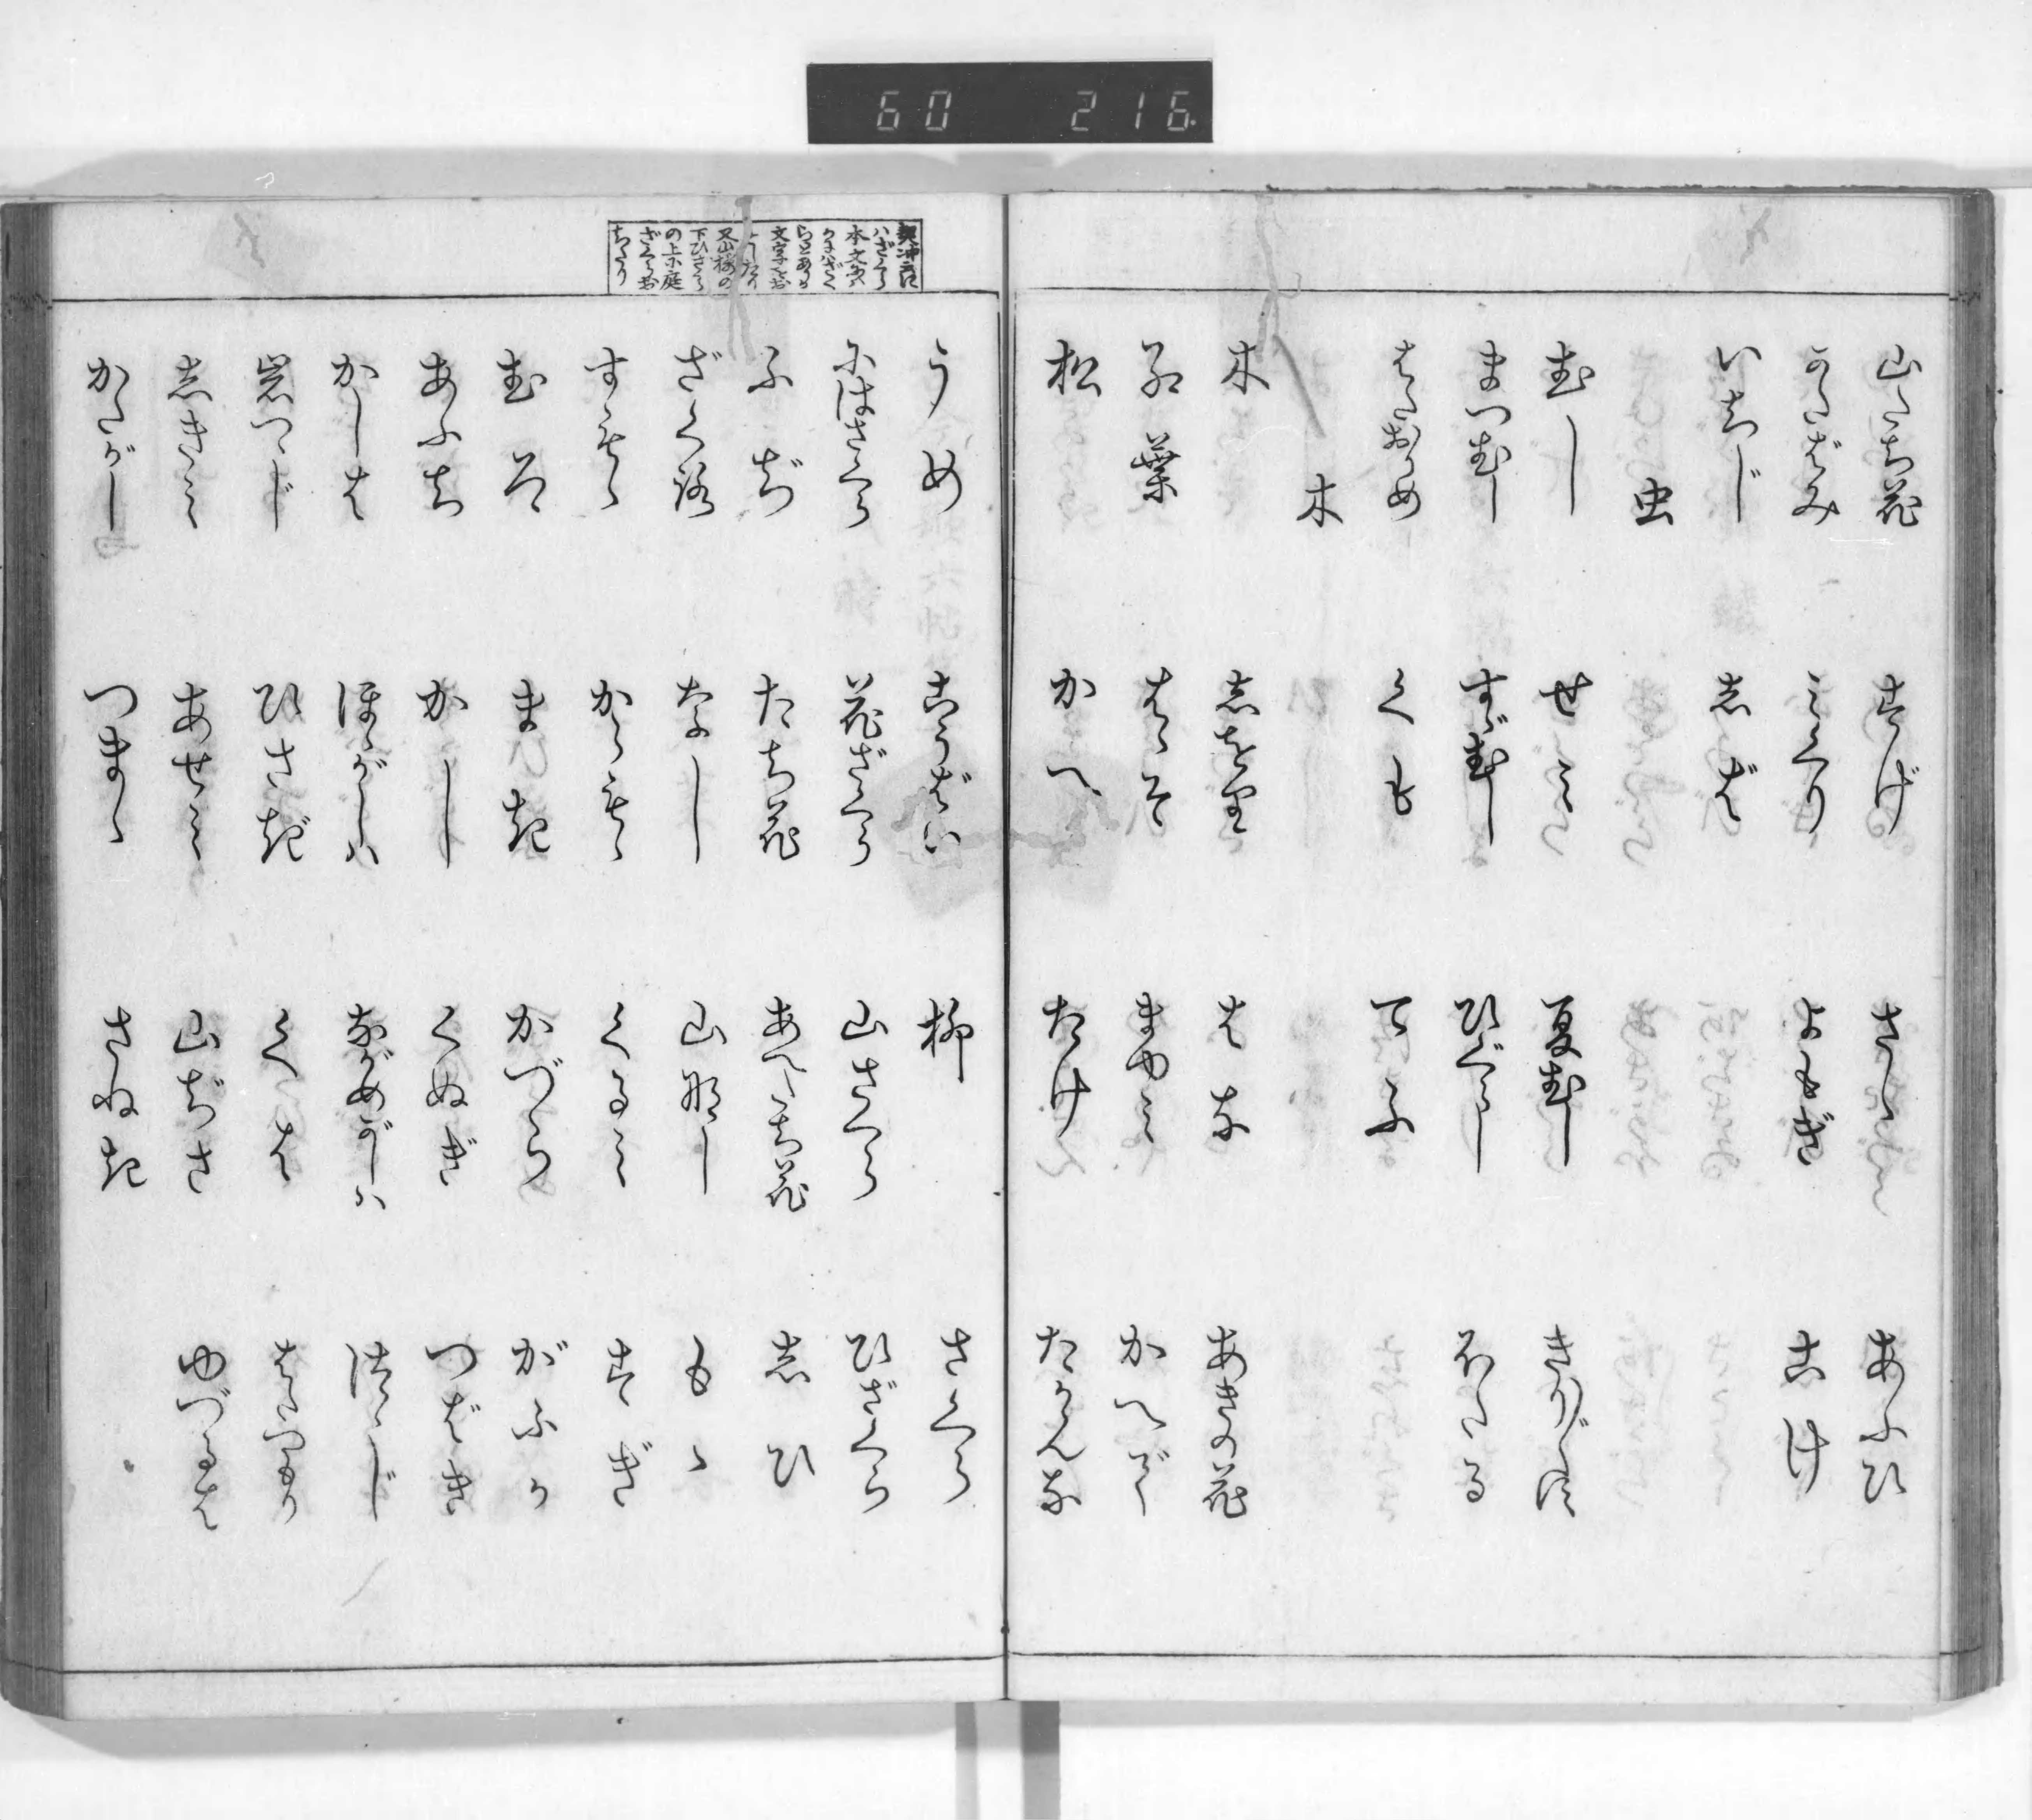 60 216
山たち花 すげ さゝ あふひ
かたばみ みくり よもぎ こけ
いちじ しば
虫
むし せみ 夏むし きり〴〵す
まつむし すゞむし ひぐらし ほたる
はたおりめ くも てふ
木
木 しをり はな あきの花
紅葉 はゝそ まゆみ かへで
松 かへ たけ たかんな
うめ こうばい 柳 さくら
にはさくら 花ざくら 山さくら ひざくら
ふぢ たち花 あへたち花 しひ
ざくろ なし 山なし もゝ
すもゝ からもゝ くるみ すぎ
むろ まき かづら がふか
あふち かし くぬぎ つばき
かしは ほゝがしは ながめがしは つゝじ
岩つゝじ ひさぎ くは はたつもり
しきみ あせみ 山ぢさ ゆづるは
かたがし つまゝ さねき